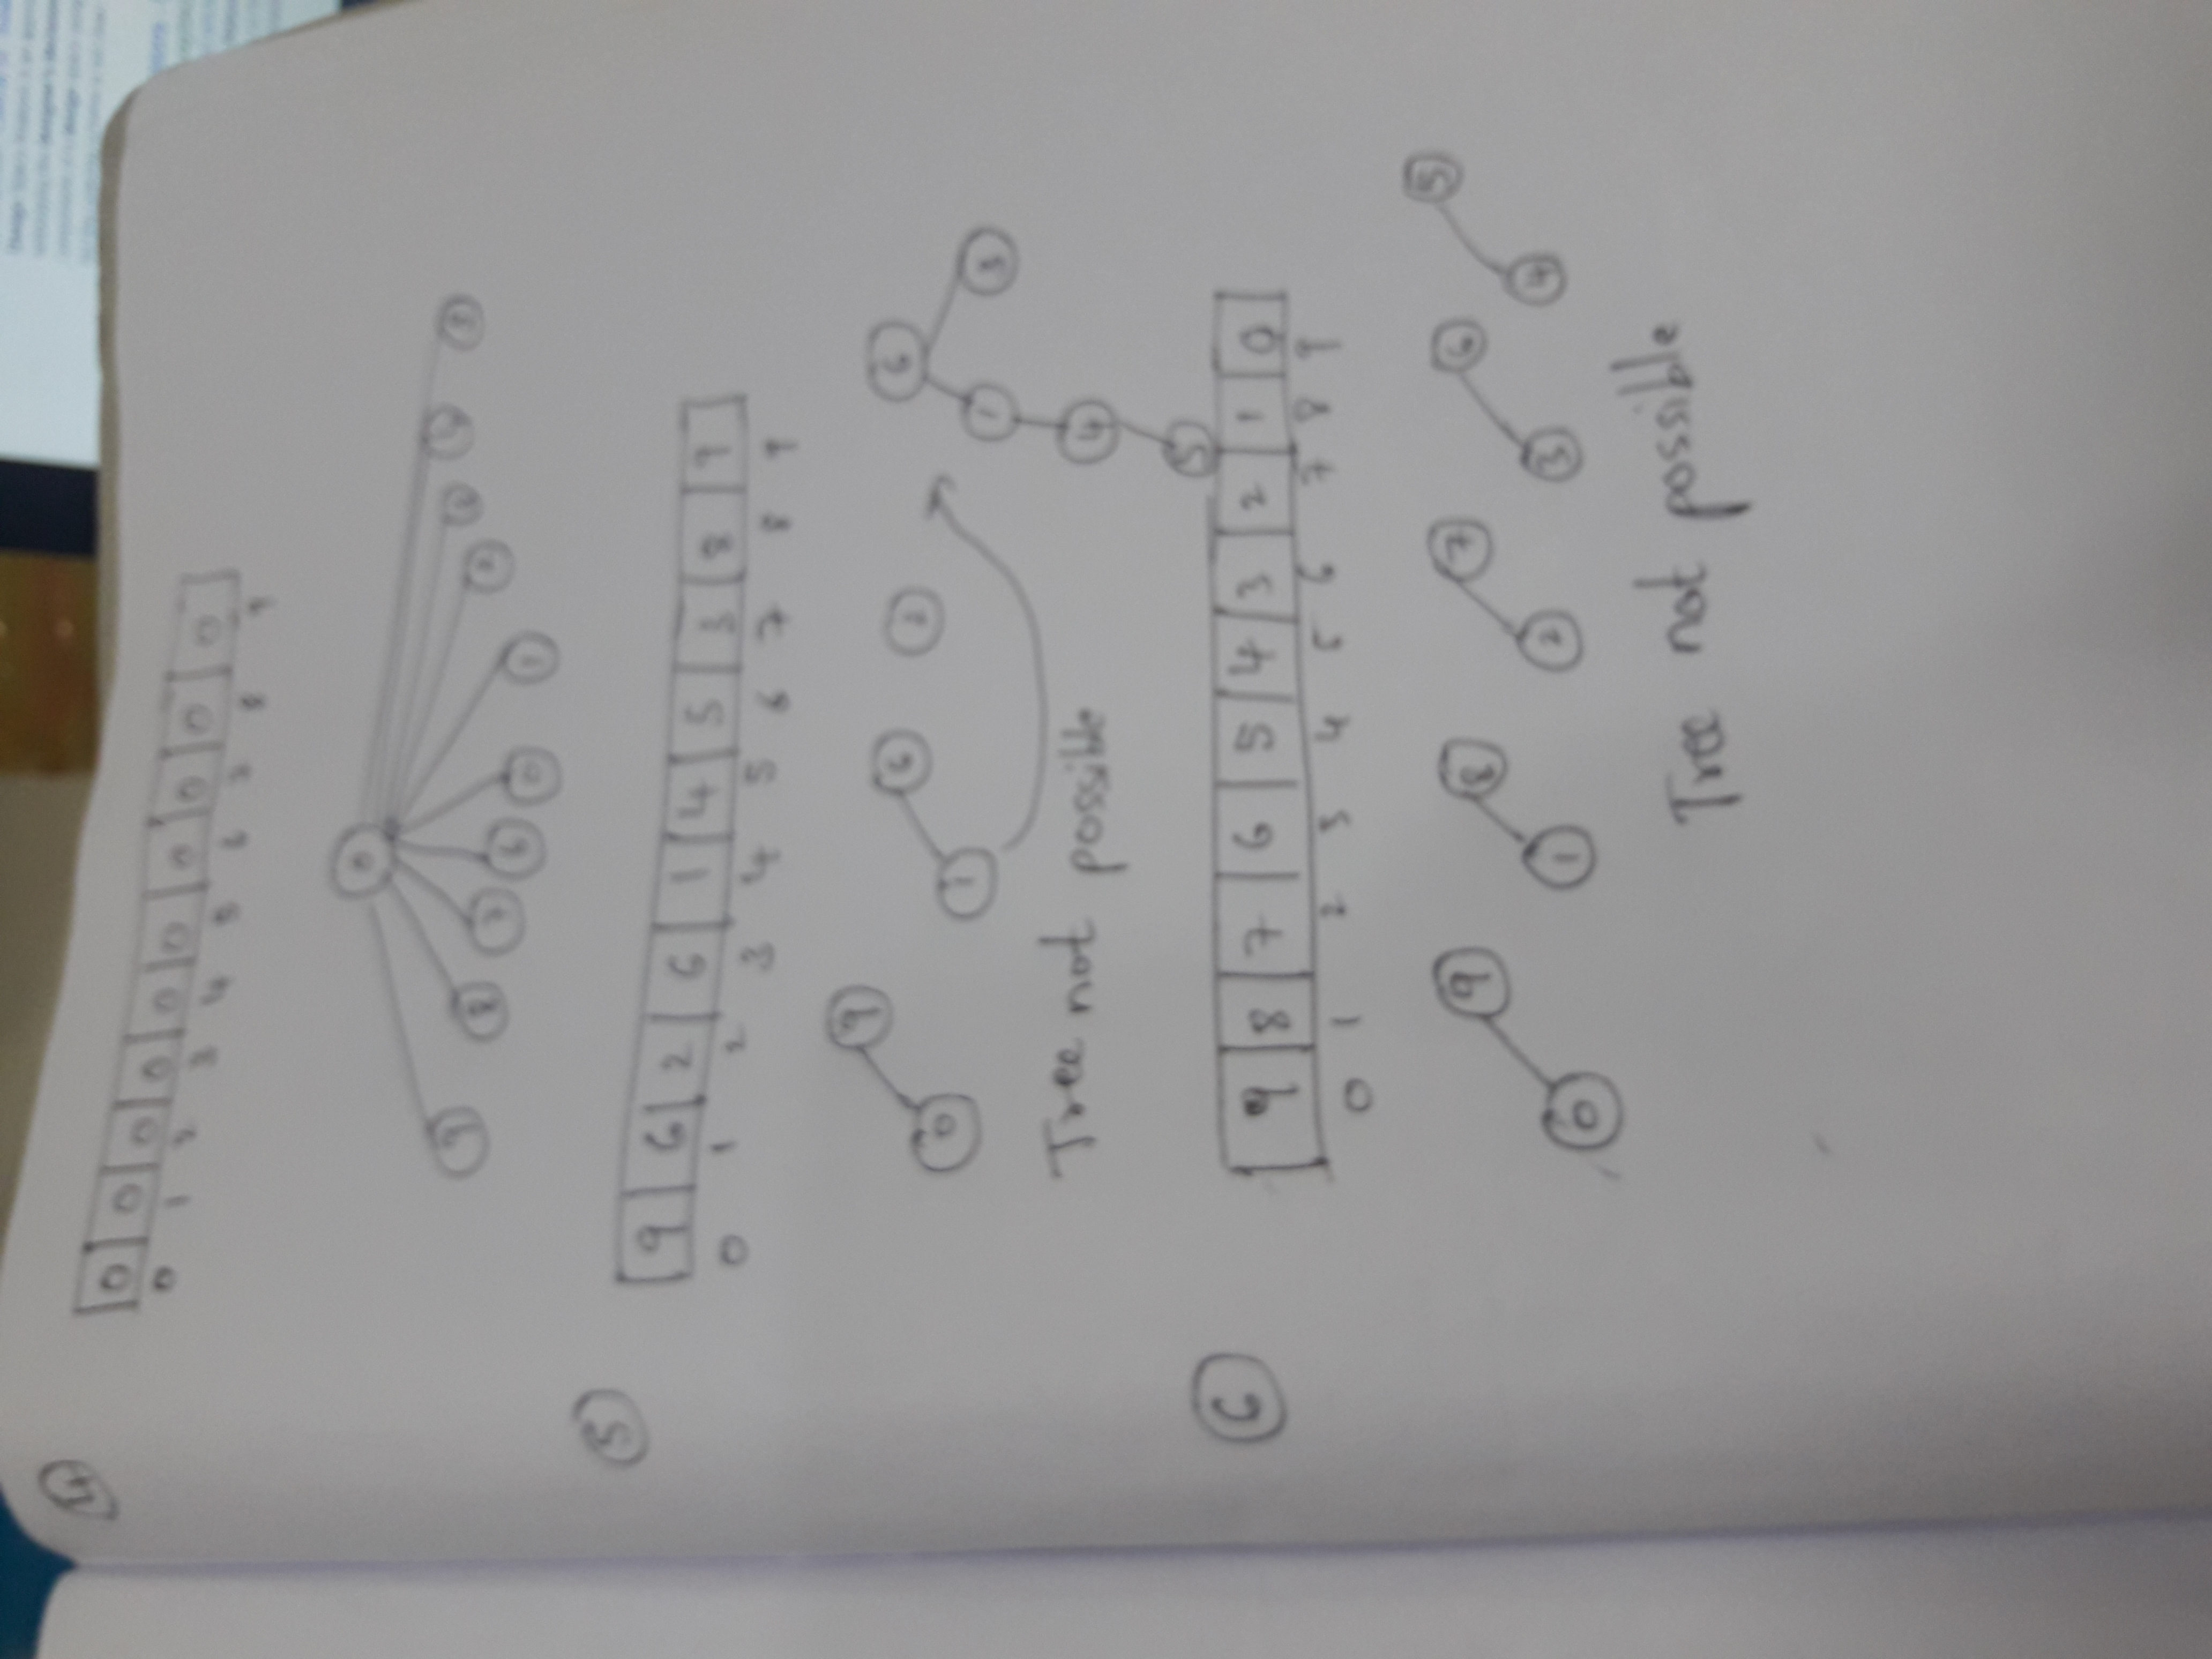 4
0 0 0 0 0 0 0 0 0 0
0 1 2 3 4 5 6 7 8 9
0
9 8 7 6 0 1 2 3
5
9 6 2 6 1 4 5 3 8 9
0 1 2 3 4 5 6 7 8 9
9 6 2 6
0 1 1 3
Tree not possible
4
5
6
9 8 7 6 5 4 3 2 1 0
0 1 2 3 4 5 6 7 8 9
9 8 7 6 5
0 1 2 3 4
Tree not possible